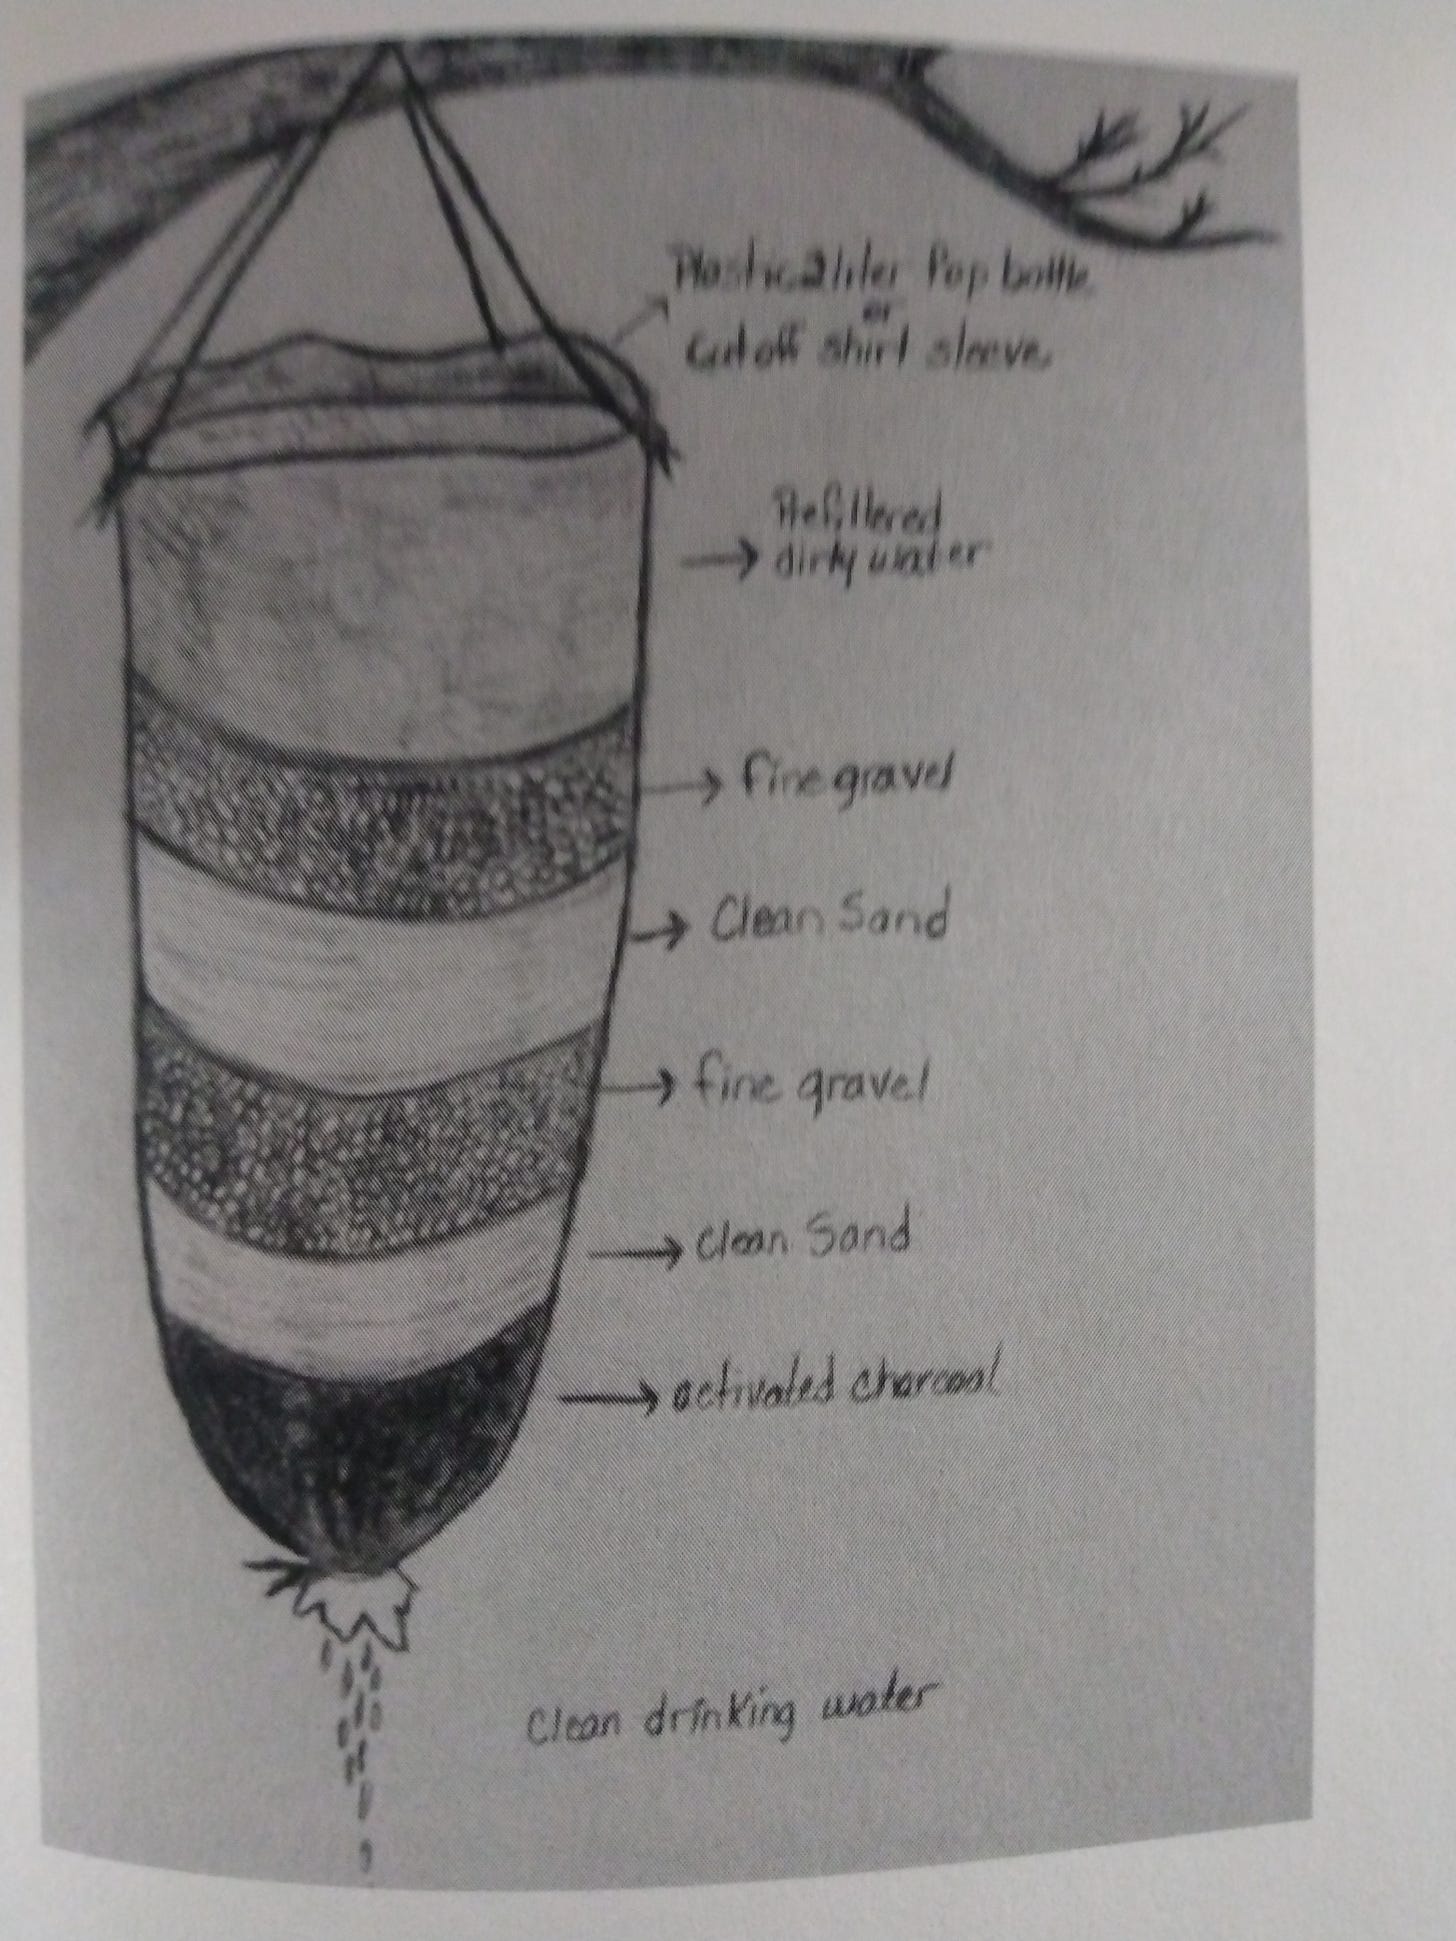 Plastic 2 liter Pop bottle
or
Cut off shirt sleeve
Prefiltered
dirty water
fine gravel
Clean Sand
fine gravel
Clean Sand
activated charcoal
Clean drinking water